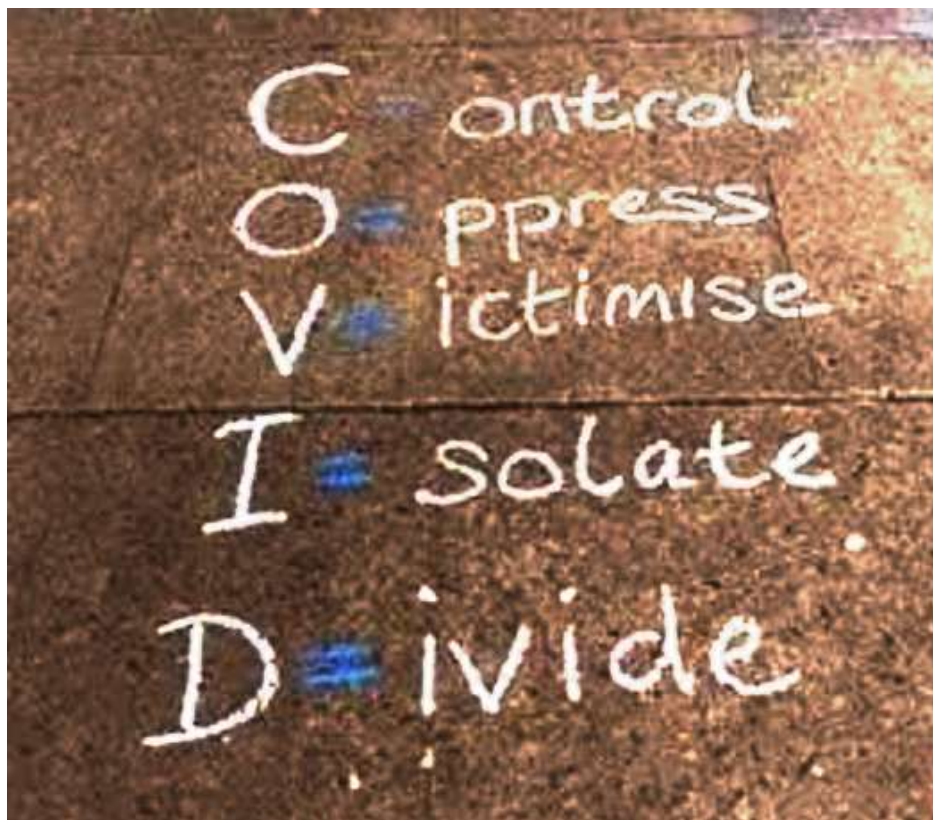 C - ontrol
O = ppress
V = ictimise
I = solate
D = ivide